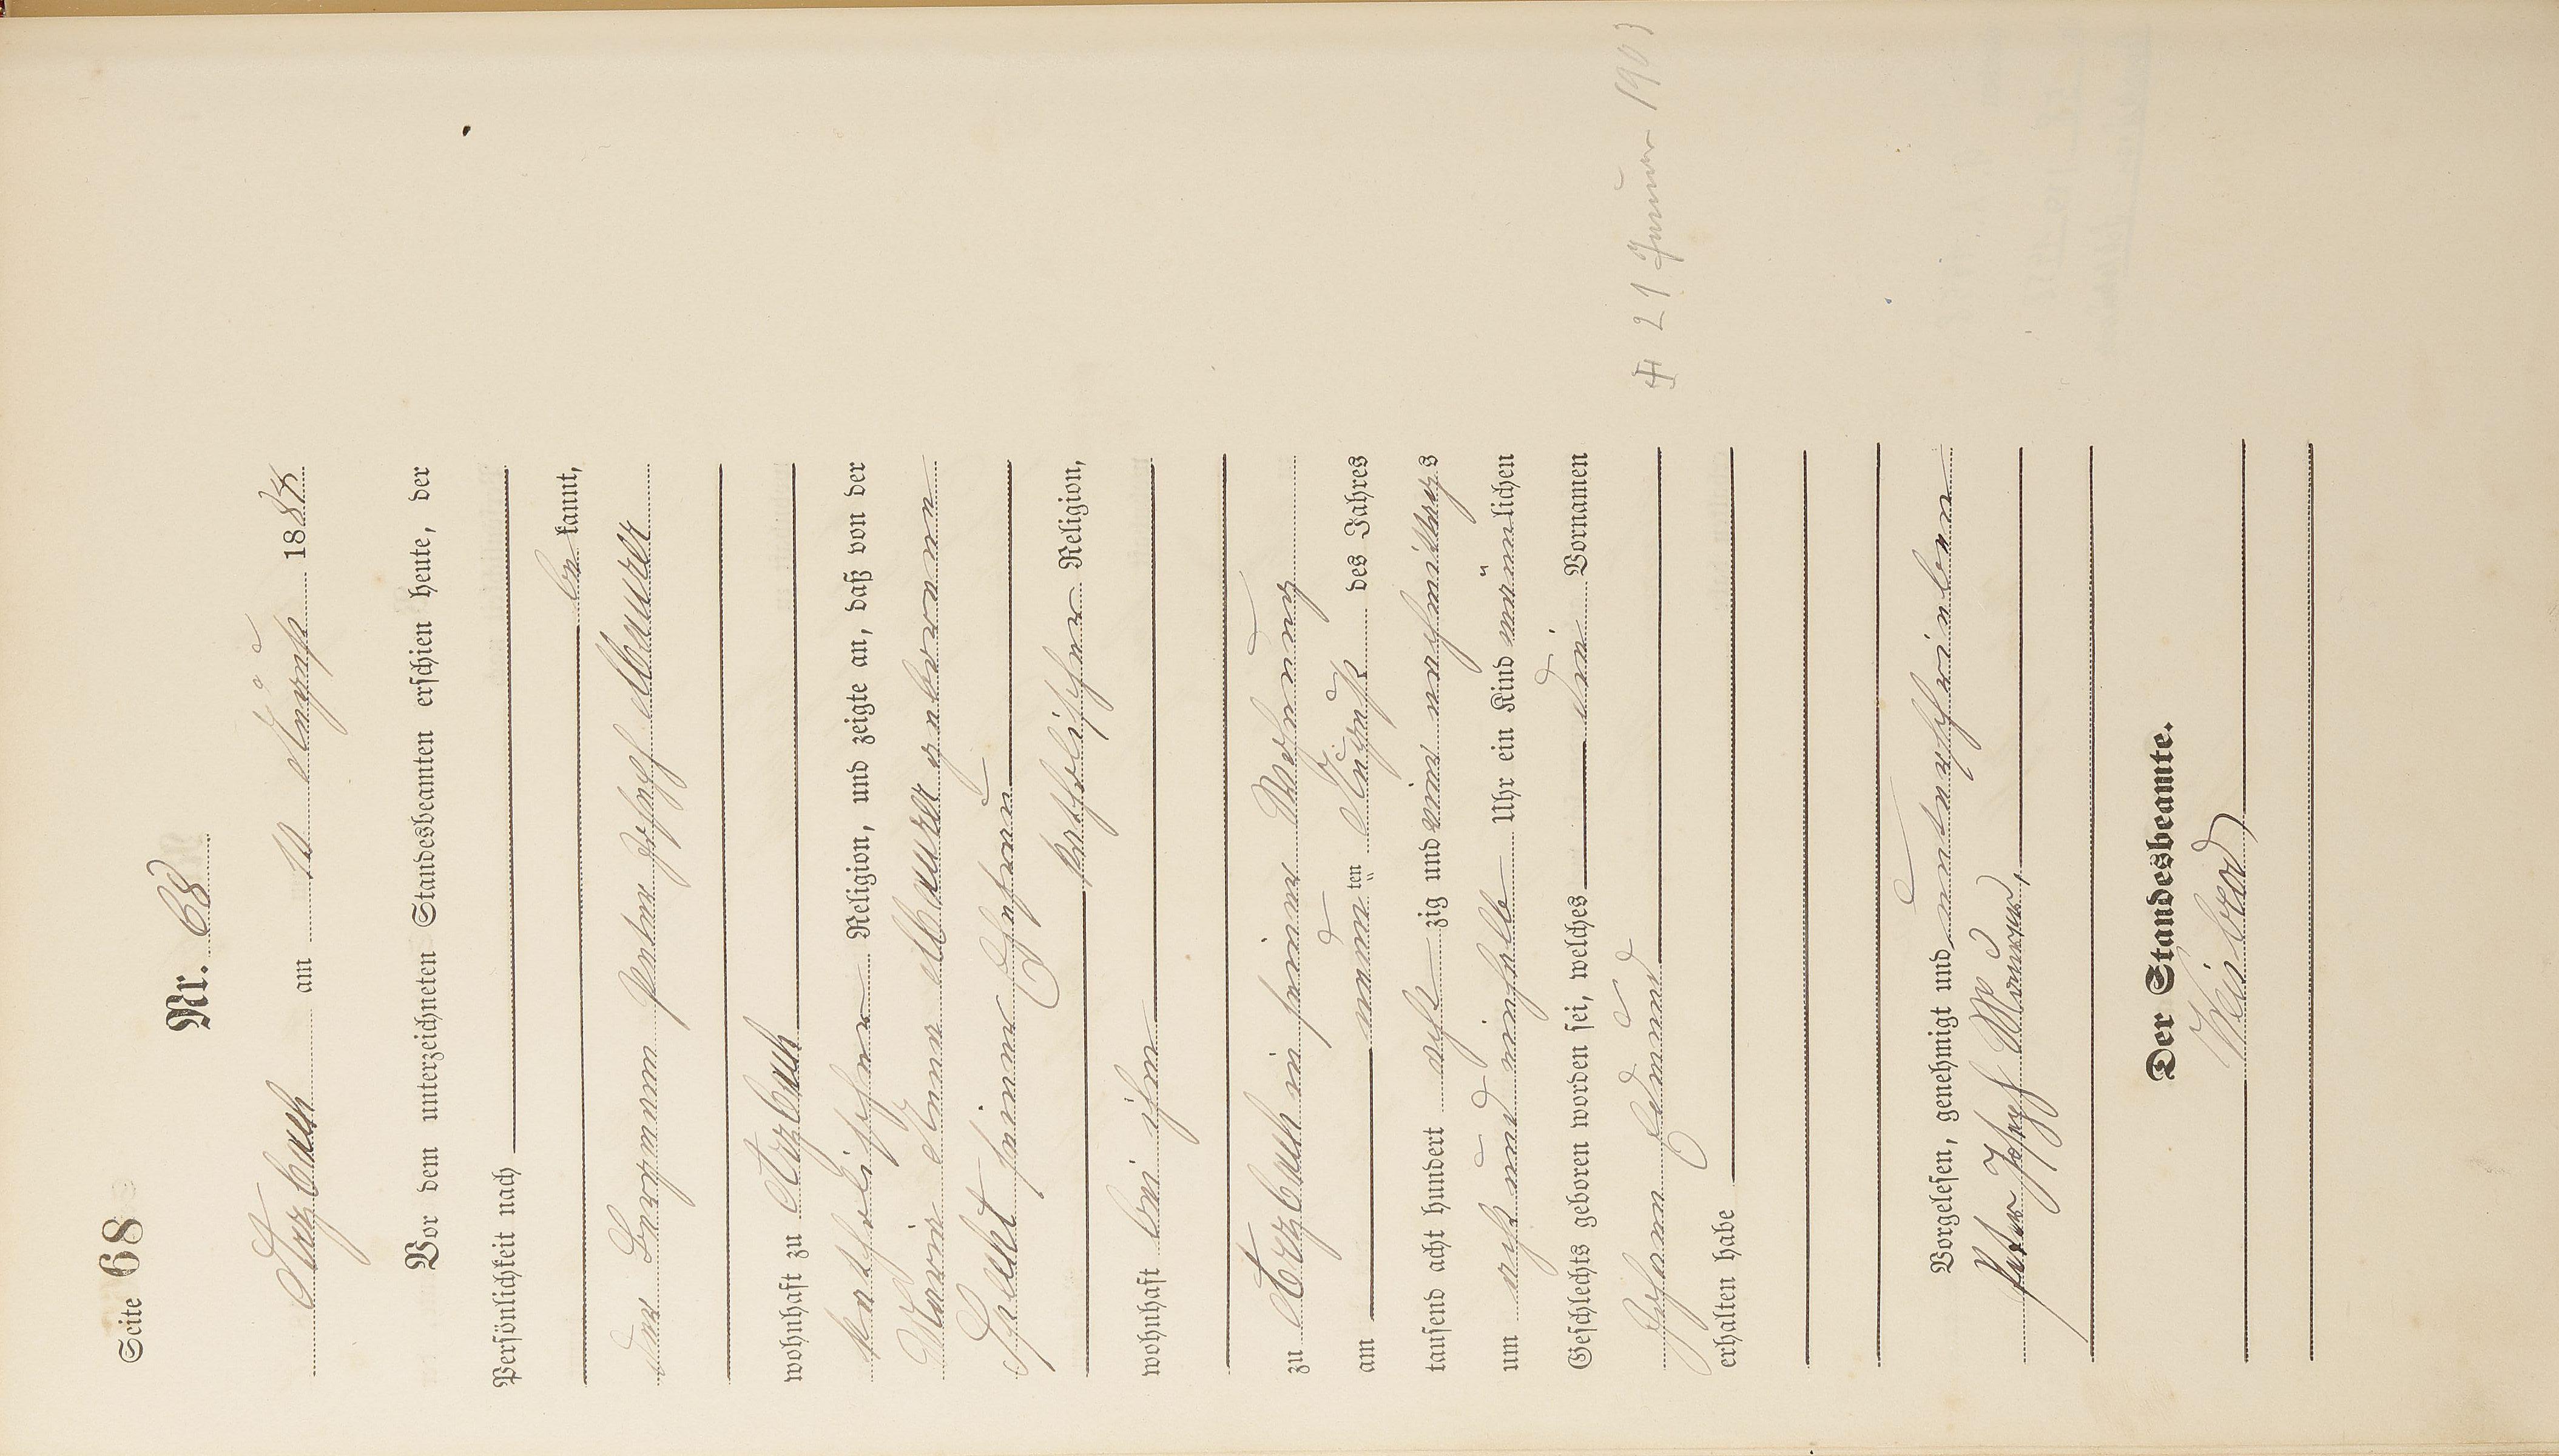 Seite 68
Nr. 68
Arzbach am 10 August 1884
Vor dem unterzeichneten Standesbeamten erschien heute, der
Persönlichkeit nach
be kannt,
der Bergmann Peter Joseph Maurer
wohnhaft zu Arzbach
katholischer Religion, und zeigte an, daß von der
Maria Anna Maurer geborenen
Specht seiner Ehefrau
katholischer Religion,
wohnhaft bei ihm
zu Arzbach in seiner Wohnung
am neunten August des Jahres
tausend acht hundert acht zig und vier nachmittags
um acht und einhalb Uhr ein Kind männlichen
Geschlechts geboren worden sei, welches die Vornamen
Johann Edmund
erhalten habe
+ 21 Januar 1903
Vorgelesen, genehmigt und unterschrieben
Peter Joseph Maurer,
Der Standesbeamte.